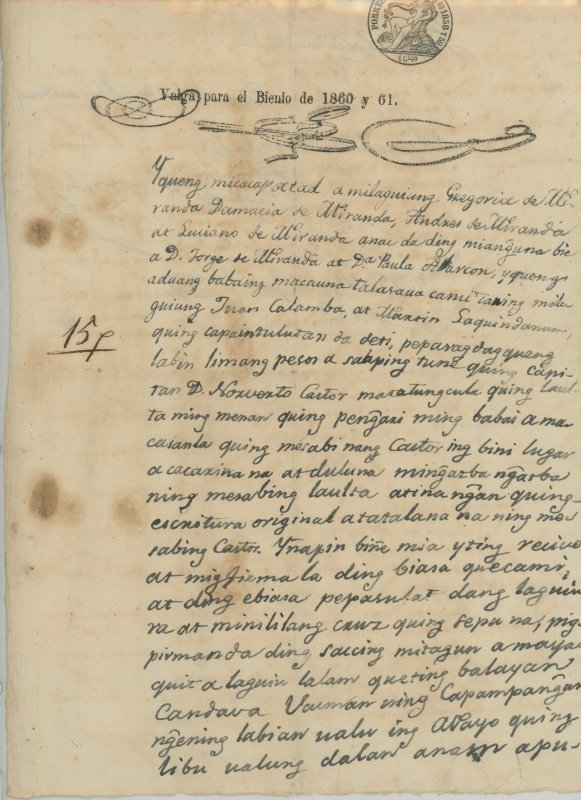 Valga para el Bienio de 1860 y 61.
Yqueng micacapatad a milaguiung Gregoria de Mi-
randa Damacia de Miranda, Andres de Miranda
at Luciano de Miranda anac da ding miangũna bie
a D. Jorge de Miranda at Da Paula Alarcon, yqueng
aduang babaing macauna talasaua cami caring mila-
guiung Juan Calamba, at Martin Laquindanum,
quing capaintulutan da deti, peparagdagqueng
labin limang pesos a salaping tune quing Capi-
tan D. Norverto Castor macatungcula quing laul-
ta ning menan quing pengari ning babai a ma-
casanla quing mesabi nang Castor ing bini lugar
a cacarina na at duluna mingatba ngatba
ning mesabing laulta atinangan quing
escritura original atatalana na ning me-
sabing Castor. Ynapin biñe mia yting recivo
at migfirma la ding biasa quecami,
at ding ebiasa pepasulat dang laguiu
ra at minililang cruz quing sepu na, pig-
pirmanda ding saccing mitagun a mayap
quit a laguiu lalam queting balayan
Candava Uauman ning Capampangan
ngening labian ualu ing Mayo quing
libu ualung dalan anam apu-
15 p